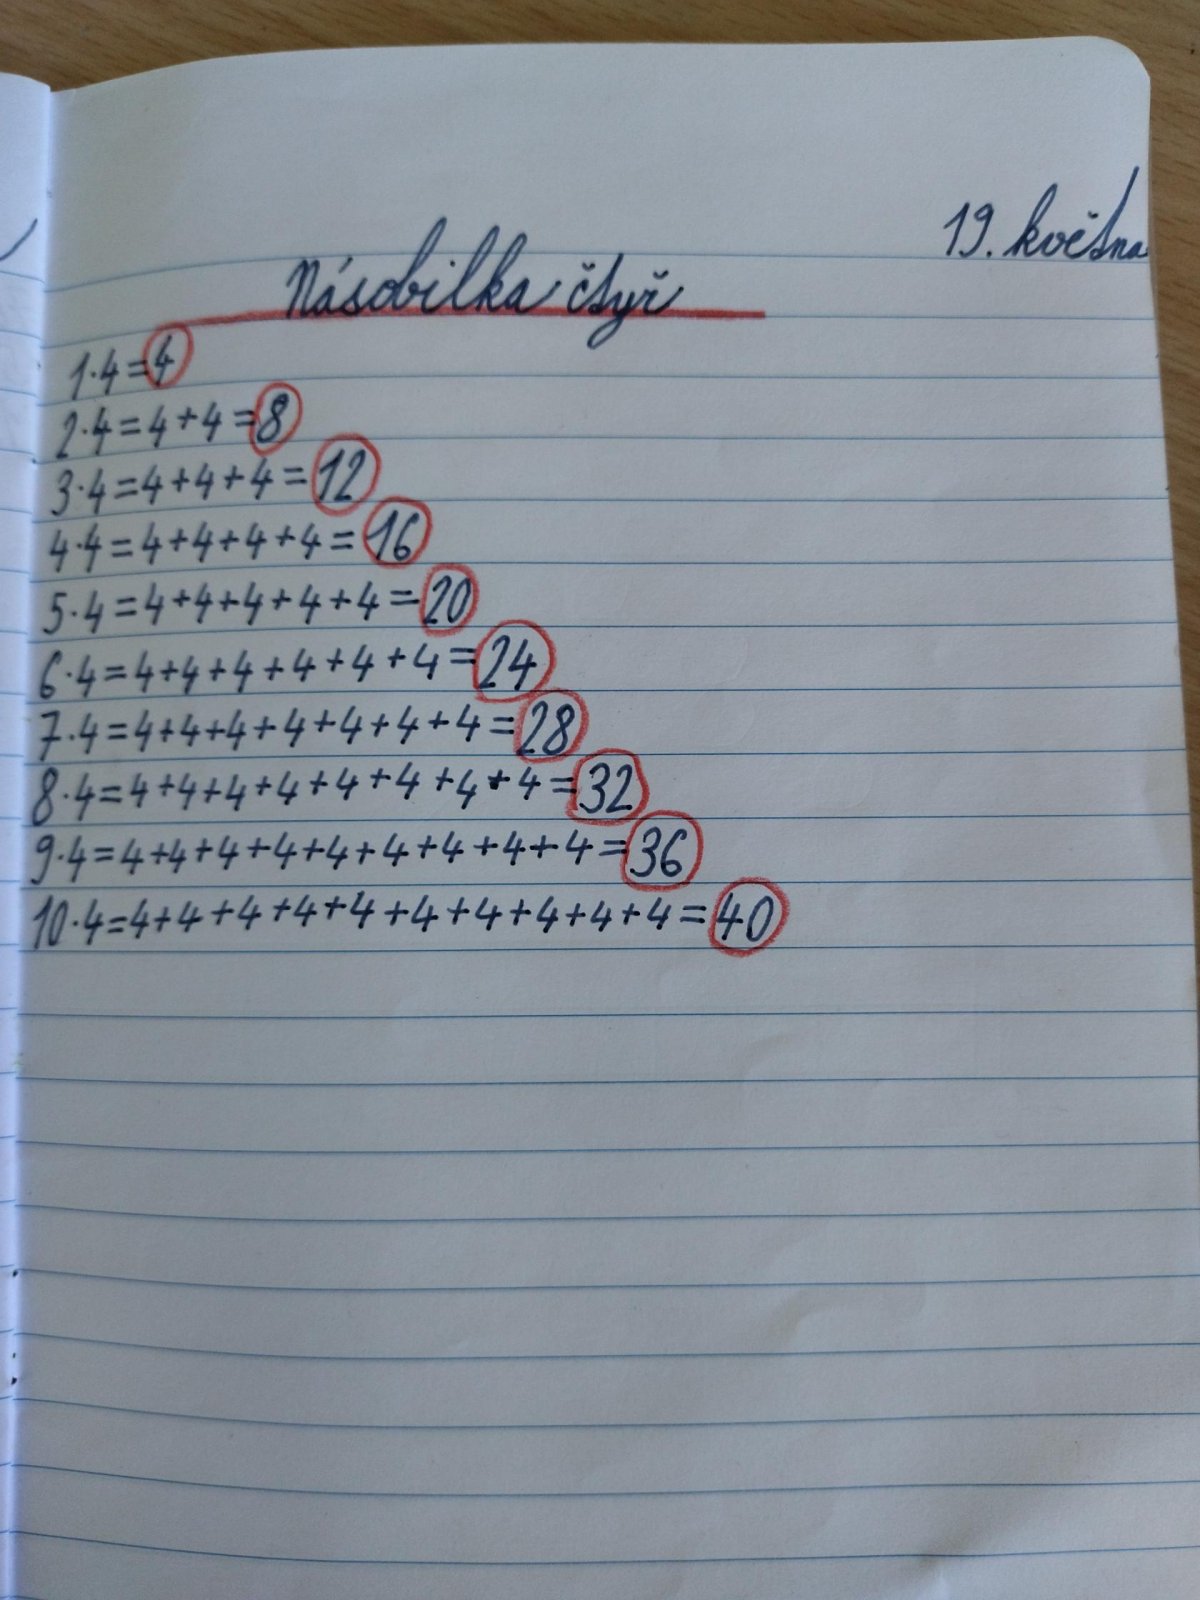 19. května
Násobilka čtyř
1·4=4
2·4=4+4=8
3·4=4+4+4=12
4·4=4+4+4+4=16
5·4=4+4+4+4+4=20
6·4=4+4+4+4+4+4=24
7·4=4+4+4+4+4+4+4=28
8·4=4+4+4+4+4+4+4+4=32
9·4=4+4+4+4+4+4+4+4+4=36
10·4=4+4+4+4+4+4+4+4+4+4=40